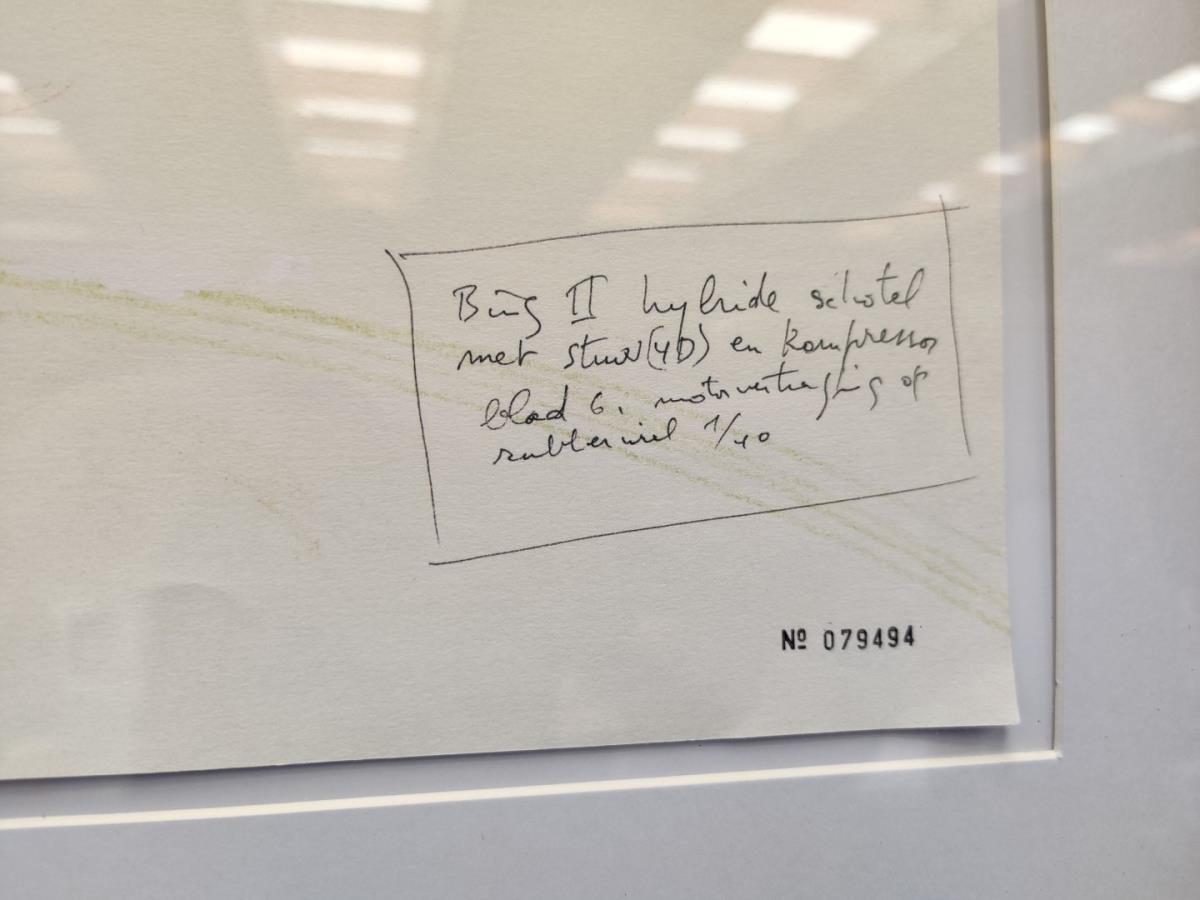 II hybride schotel
met stuur(4D) en kompressor
blad 6. motorvertraging op
rubberwiel 1/40
Nº 079494